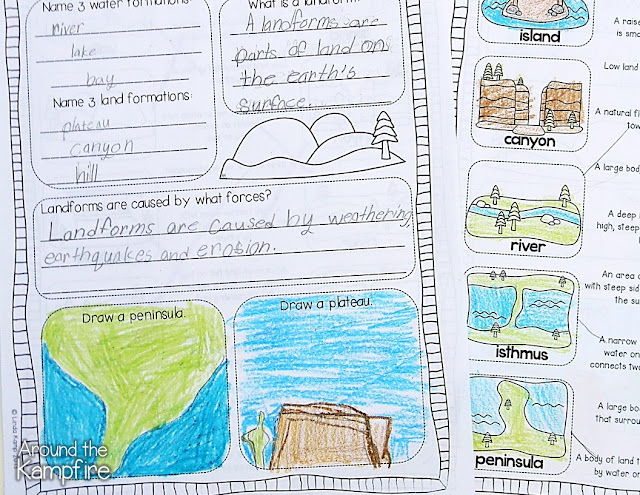 Name 3 water formations:
river
lake
bay
Name 3 land formations:
plateau
canyon
hill
What is a landform?
A landforms are
parts of land ons
the earth's
surface.
Landforms are caused by what forces?
Landforms are caused by weathering,
earthquakes and erosion.
Draw a peninsula.
Draw a plateau.
Around the
Kampfire
island
canyon
river
isthmus
peninsula
A raise
is sma
Low land
A natural fl
tow
A large bod
A deep
high, steep
An area o
with steep sid
the su
A narrow
water on
connects two
A large bo
that surrou
A body of land t
by water on